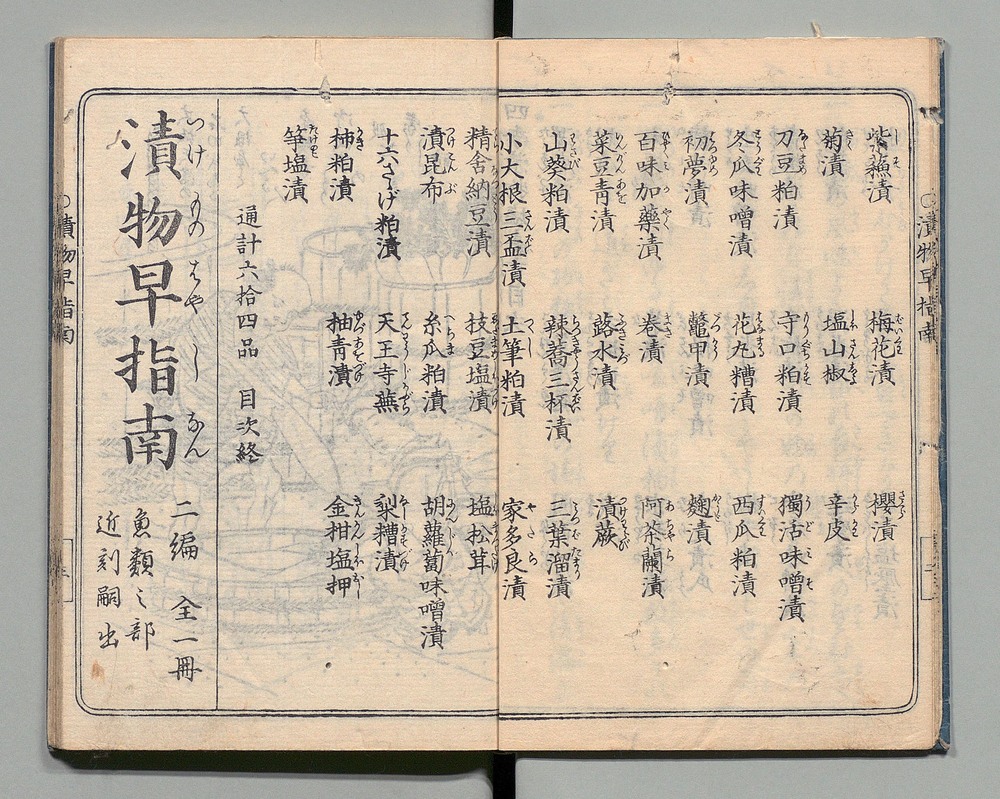 紫蘓漬 梅花漬 櫻漬
菊漬 塩山椒 辛皮
刀豆粕漬 守口粕漬 獨活味噌漬
冬瓜味噌漬 花丸糟漬 西瓜粕漬
初夢漬 鼈甲漬 麹漬
百味加藥漬 巻漬 阿茶蘭漬
菜豆青漬 蕗水漬 漬蕨
山葵粕漬 辣蕎三杯漬 三葉溜漬
小大根三盃漬 土筆粕漬 家多良漬
精舎納豆漬 枝豆塩漬 塩松茸
漬昆布 糸瓜粕漬 胡蘿蔔味噌漬
十六さゝげ粕漬 天王寺蕪 梨糟漬
柿粕漬 柚青漬 金柑塩押
筝塩漬
通計六拾四品 目次終
漬物早指南
つけものはやしなん
二編 全一冊
魚類之部
近刻嗣出
漬物早指南
漬物早指南